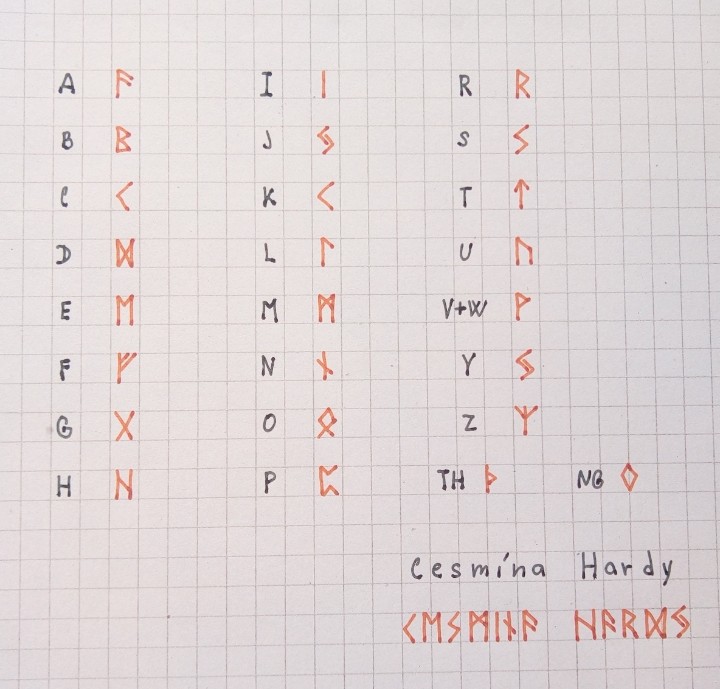 A ᚨ I ᛁ R ᚱ
B ᛒ J ᛃ S ᛊ
C ᚲ K ᚲ T ᛏ
D ᛞ L ᛚ U ᚢ
E ᛖ M ᛗ V+W ᚹ
F ᚠ N ᚾ Y ᛃ
G ᚷ O ᛟ Z ᛉ
H ᚺ P ᛈ TH ᚦ NG ᛜ
Cesmína Hardy
ᚲᛖᛊᛗᛁᚾᚨ ᚺᚨᚱᛞᛃ